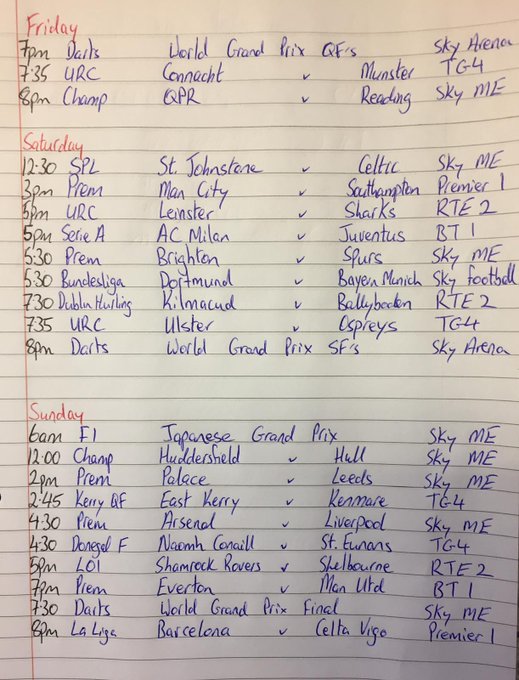 Friday
7pm Darts World Grand Prix QF's Sky Arena
7:35 URC Connacht v Munster TG4
8pm Champ QPR v Reading Sky ME
Saturday
12:30 SPL St. Johnstone v Celtic Sky ME
3pm Prem Man City v Southampton Premier 1
5pm URC Leinster v Sharks RTE 2
5pm Serie A AC Milan v Juventus BT 1
5:30 Prem Brighton v Spurs Sky ME
5:30 Bundesliga Dortmund v Bayern Munich Sky Football
7:30 Dublin Hurling Kilmacud v Ballyboden RTE 2
7:35 URC Ulster v Ospreys TG4
8pm Darts World Grand Prix SF's Sky Arena
Sunday
6am F1 Japanese Grand Prix Sky ME
12:00 Champ Huddersfield v Hull Sky ME
2pm Prem Palace v Leeds Sky ME
2:45 Kerry QF East Kerry v Kenmare TG4
4:30 Prem Arsenal v Liverpool Sky ME
4:30 Donegal F Naomh Conaill v St. Eunans TG4
5pm LOI Shamrock Rovers v Shelbourne RTE 2
7pm Prem Everton v Man Utd BT 1
7:30 Darts World Grand Prix Final Sky ME
8pm La Liga Barcelona v Celta Vigo Premier 1